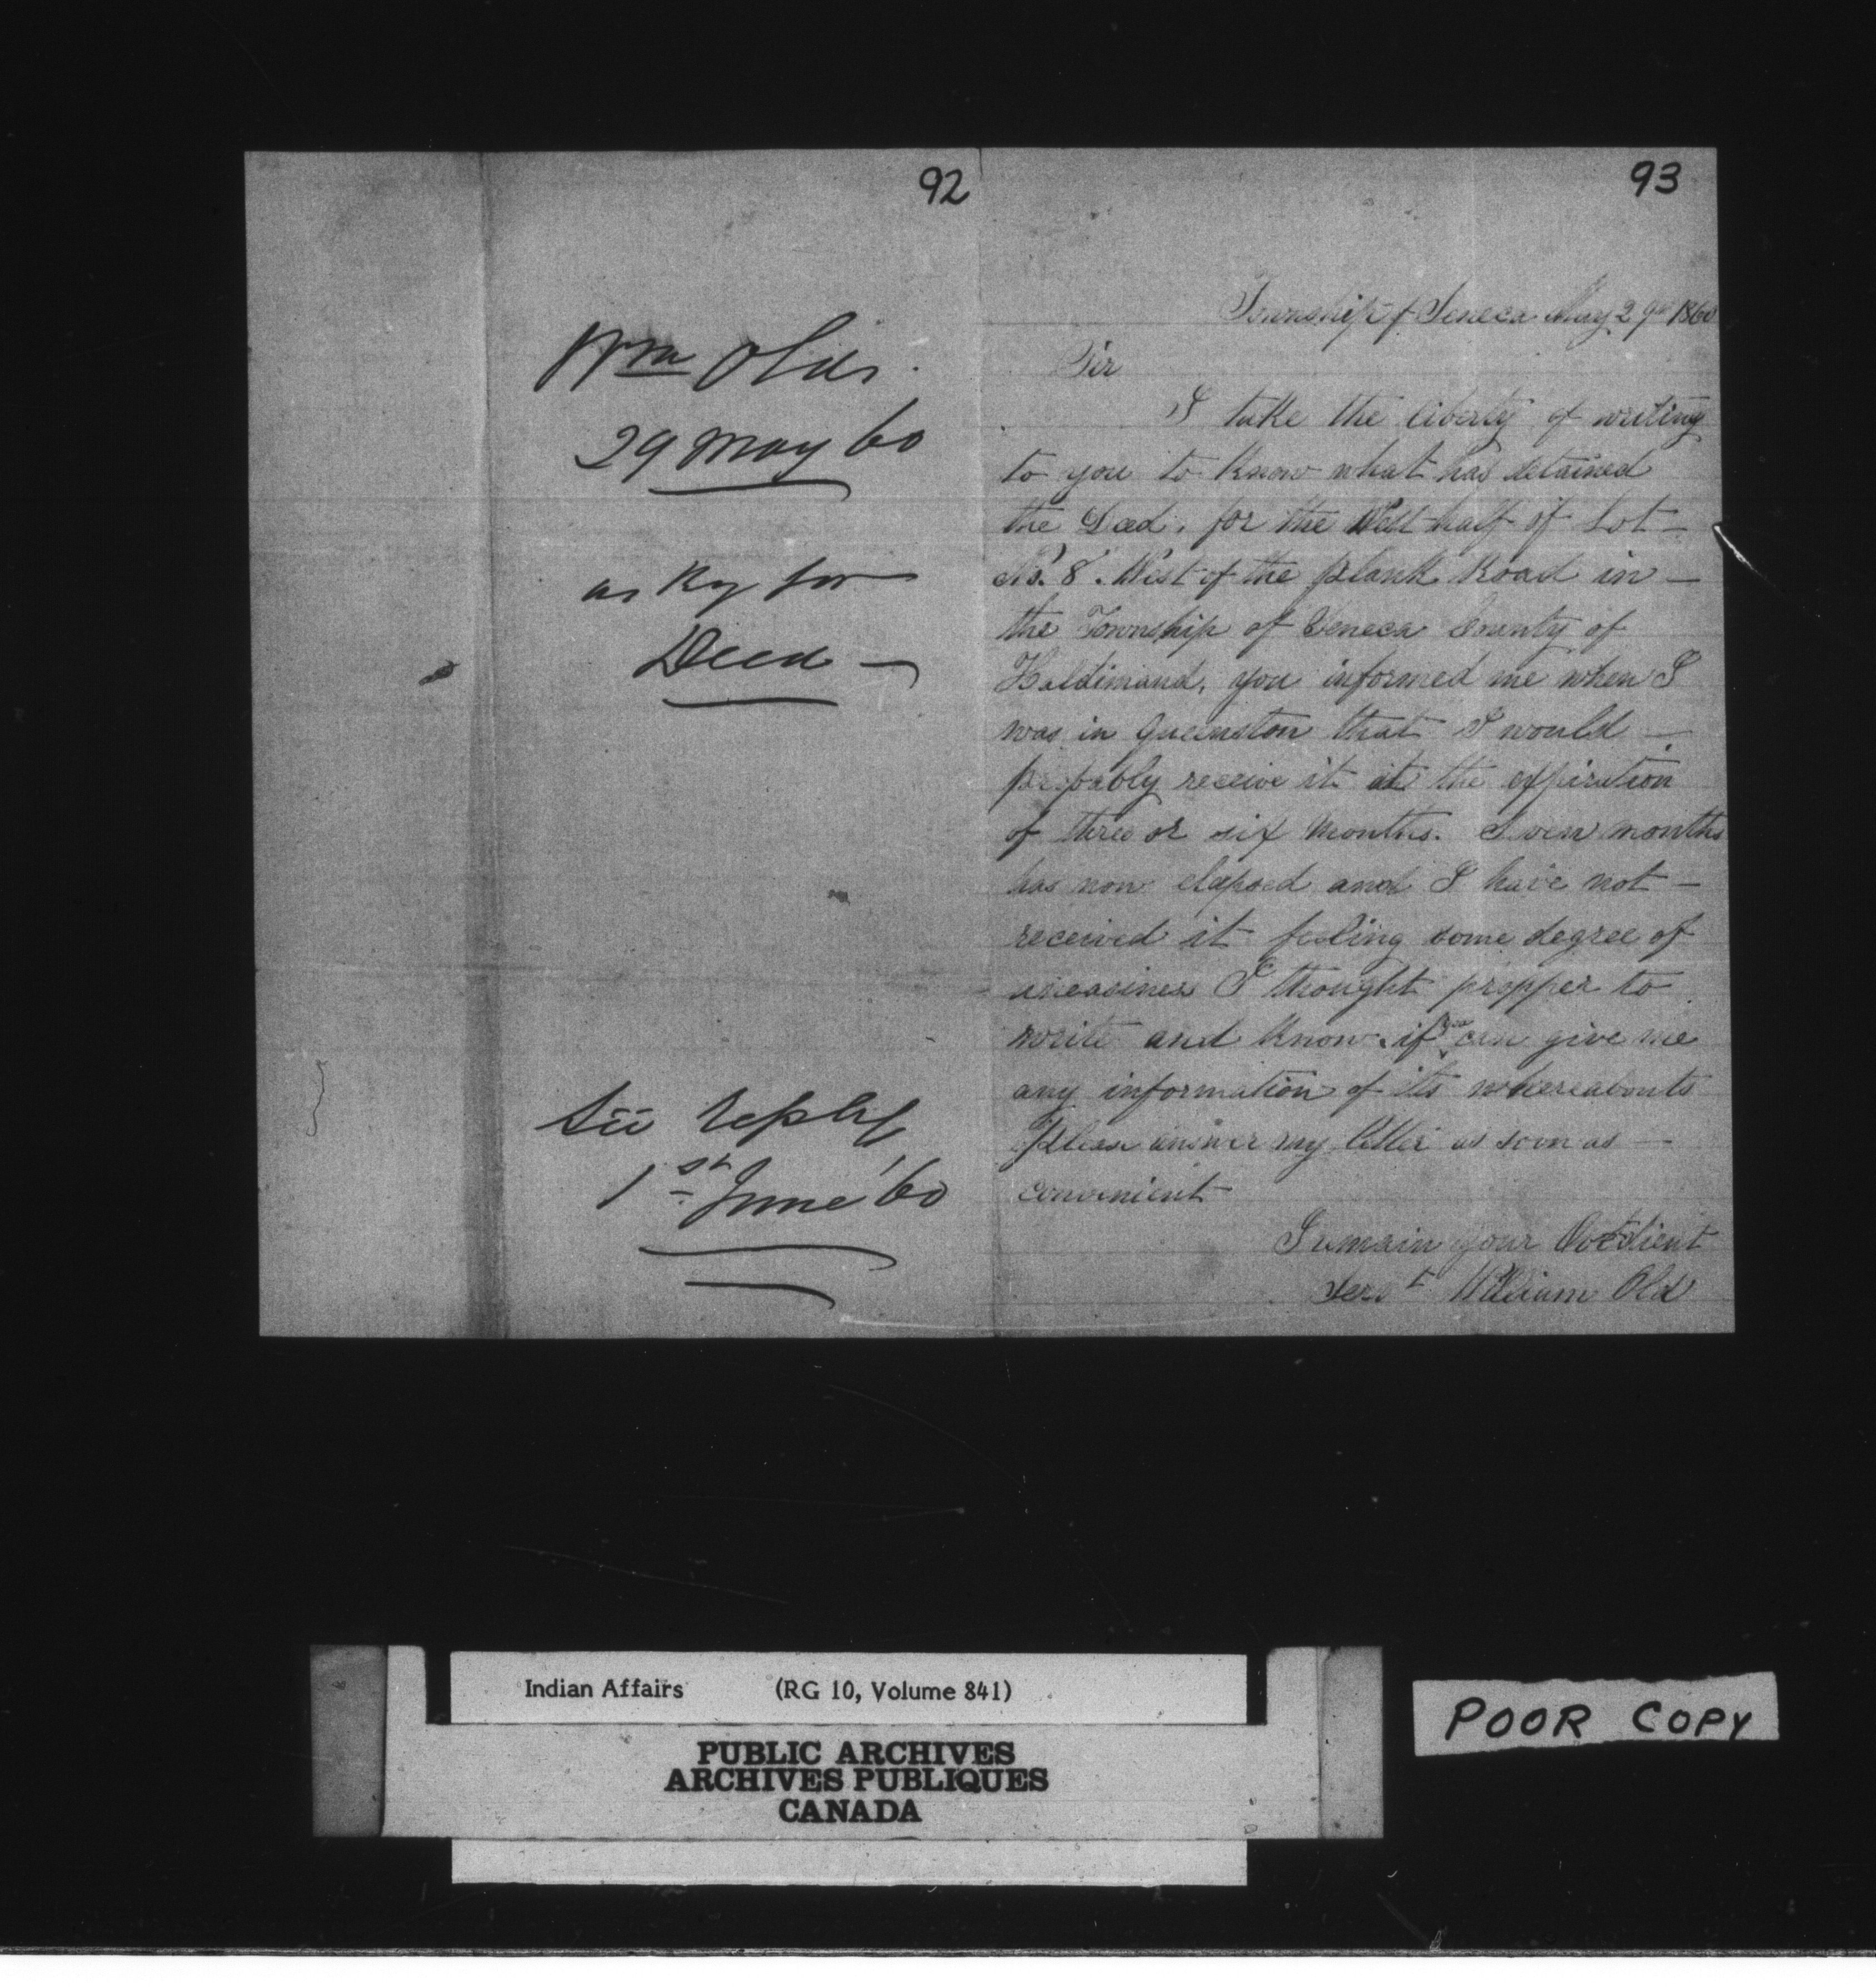 92
Wm Olds.
29 May 60
asking for
Deed —
See reply
1st June '60
93
Township of Seneca May 29th 1860
Sir
I take the liberty of writing
to you to know what has detained
the Deed, for the West half of Lot —
No. 8. West of the Plank Road in —
the Township of Seneca County of
Haldimand, you informed me when I
was in Queenston that I would —
probably receive it at the expiration
of three or six months. Seven months
has now elapsed and I have not —
received it feeling some degree of
uneasiness I thought propper to
write and know if you can give me
any information of its whereabouts
Please answer my letter as soon as —
convenient
I remain your Obedient
Servt William Old
Indian Affairs (RG 10, Volume 841)
PUBLIC ARCHIVES
ARCHIVES PUBLIQUES
CANADA
POOR COPY